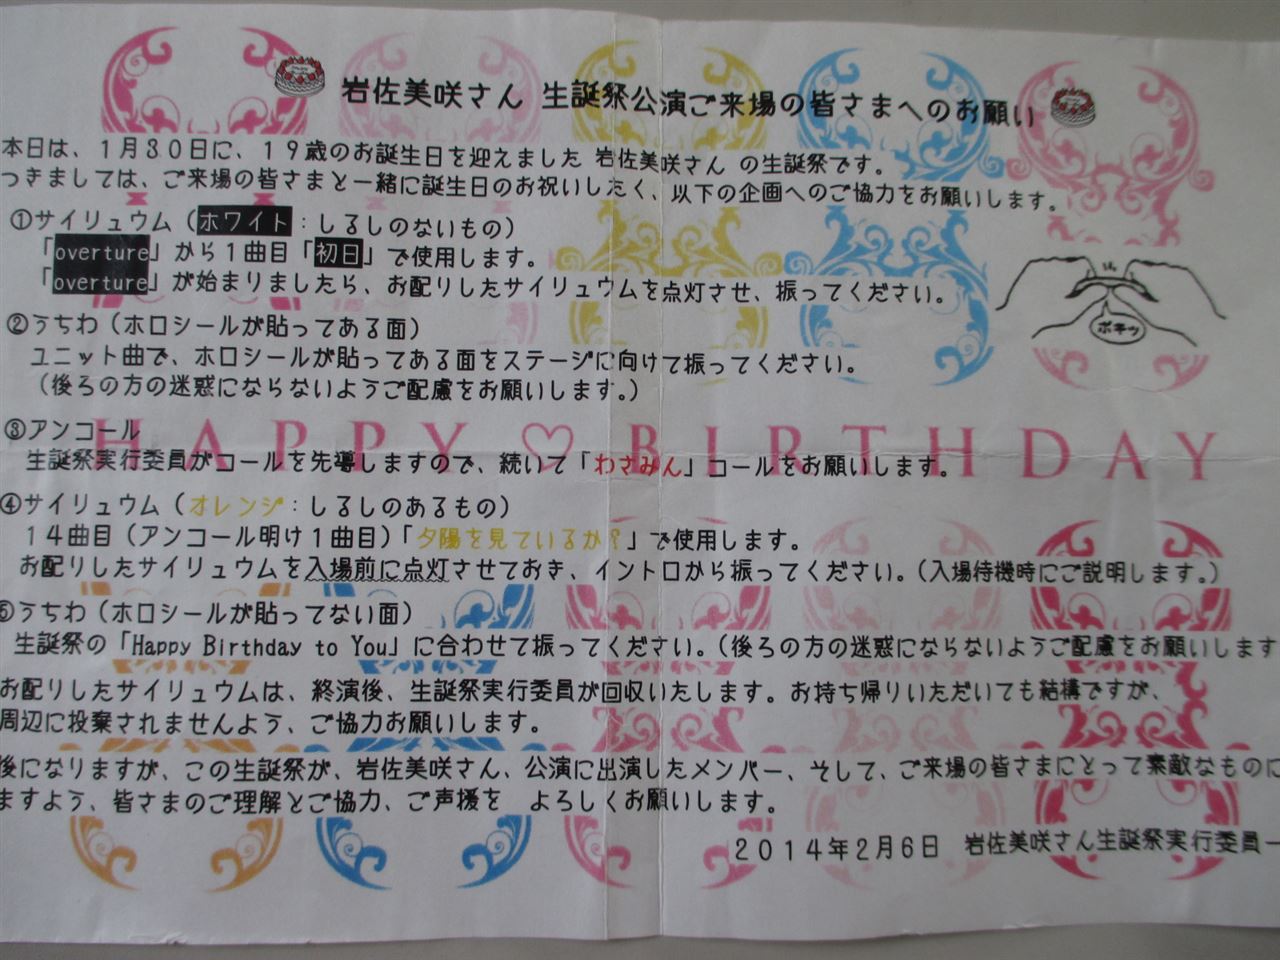 岩佐美咲さん 生誕祭公演ご来場の皆さまへのお願い
本日は、1月30日に、19歳のお誕生日を迎えました 岩佐美咲さん の生誕祭です。
つきましては、ご来場の皆さまと一緒に誕生日のお祝いしたく、以下の企画へのご協力をお願いします。
①サイリュウム(ホワイト:しるしのないもの)
「overture」から1曲目「初日」で使用します。
「overture」が始まりましたら、お配りしたサイリュウムを点灯させ、振ってください。
ポキッ
②うちわ(ホロシールが貼ってある面)
ユニット曲で、ホロシールが貼ってある面をステージに向けて振ってください。
(後ろの方の迷惑にならないようご配慮をお願いします。)
HAPPY♡BIRTHDAY
③アンコール
生誕祭実行委員がコールを先導しますので、続いて「わさみん」コールをお願いします。
④サイリュウム(オレンジ:しるしのあるもの)
14曲目(アンコール明け1曲目)「夕陽を見ているか?」で使用します。
お配りしたサイリュウムを入場前に点灯させておき、イントロから振ってください。(入場待機時にご説明します。)
⑤うちわ(ホロシールが貼ってない面)
生誕祭の「Happy Birthday to You」に合わせて振ってください。(後ろの方の迷惑にならないようご配慮をお願いします
お配りしたサイリュウムは、終演後、生誕祭実行委員が回収いたします。お持ち帰りいただいても結構ですが、
周辺に投棄されませんよう、ご協力お願いします。
後になりますが、この生誕祭が、岩佐美咲さん、公演に出演したメンバー、そして、ご来場の皆さまにとって素敵なものに
ますよう、皆さまのご理解とご協力、ご声援を よろしくお願いします。
2014年2月6日 岩佐美咲さん生誕祭実行委員一